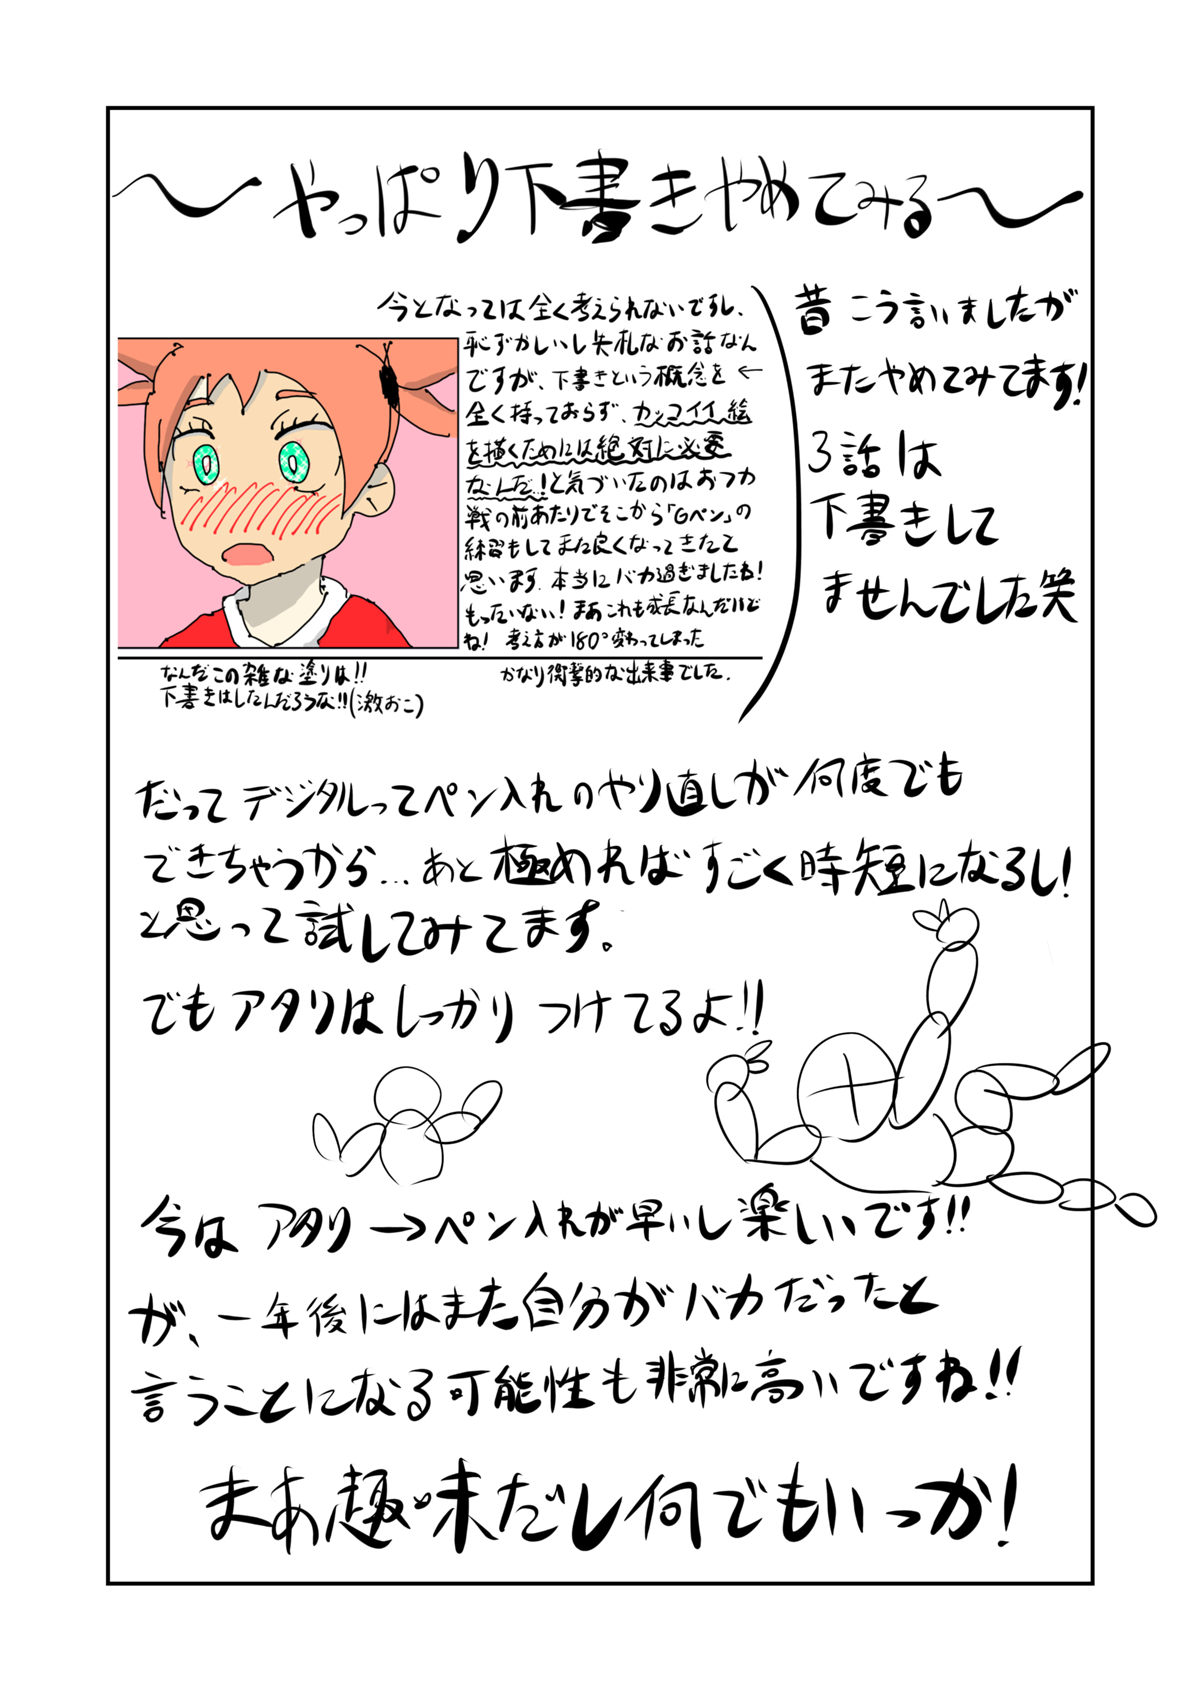 〜やっぱり下書きやめてみる〜
今となっては全く考えられないですし、
恥ずかしいし失礼なお話なん
ですが、下書きという概念を←
全く持っておらず、カッコイイ絵
を描くためには絶対に必要
なんだ！と気づいたのはおつか
戦の前あたりでそこから「Gペン」の
練習もしてまた良くなってきたて
思います。本当にバカ過ぎましたね！
もったいない！まあこれも成長なんだけど
ね！考え方が180°変わってしまった
かなり衝撃的な出来事でした。
なんだこの雑な塗りは!!
下書きはしたんだろうな!!(激おこ)
昔こう言いましたが
またやめてみてます！
3話は
下書きして
ませんでした笑
だってデジタルってペン入れのやり直しが何度でも
できちゃうから…あと極めればすごく時短になるし！
と思って試してみてます。
でもアタリはしっかりつけてるよ!!
今はアタリ→ペン入れが早いし楽しいです!!
が、一年後にはまた自分がバカだったと
言うことになる可能性も非常に高いですね!!
まあ趣味だし何でもいっか！